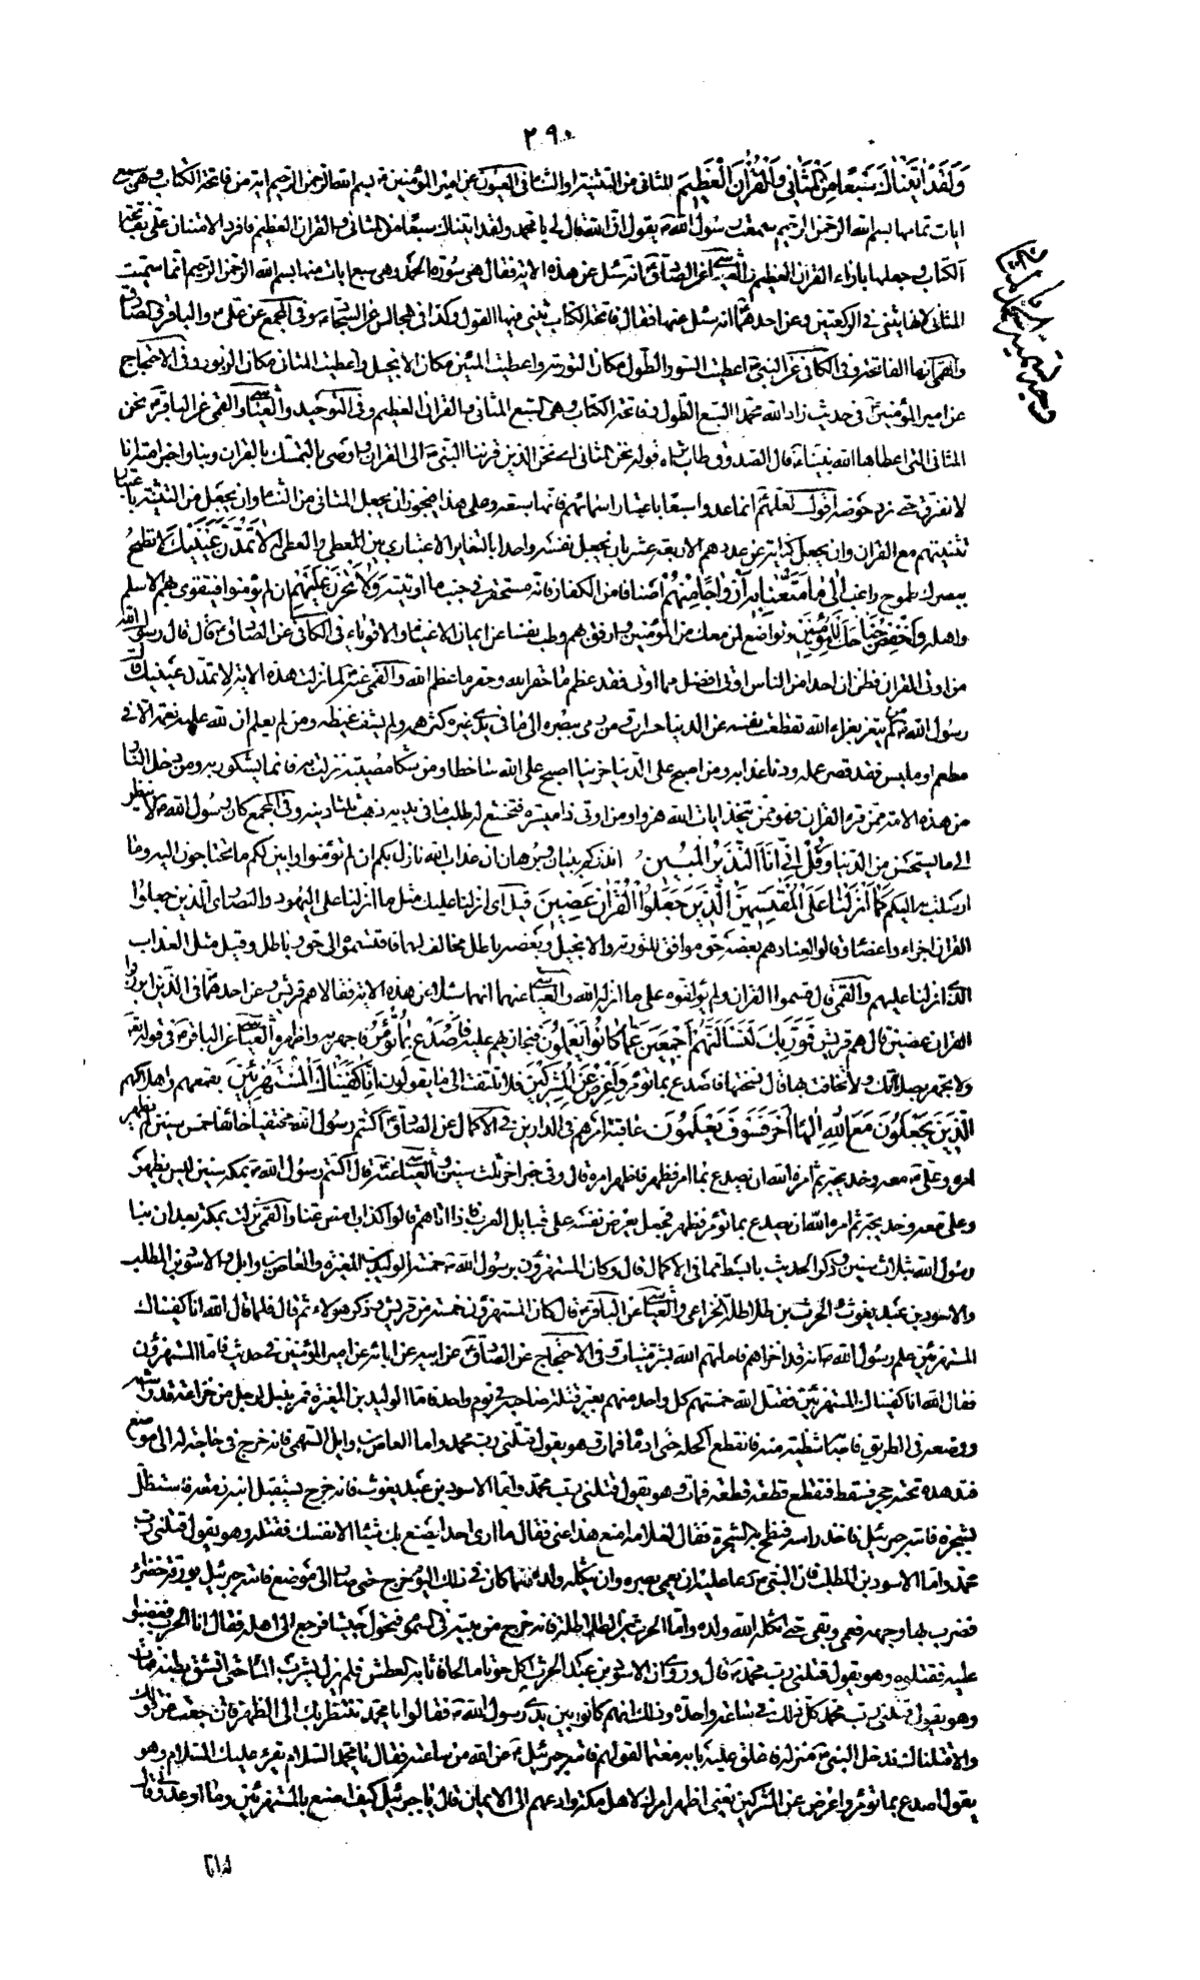 ٢٩٠
وَلَقَدْ اٰتَيْنٰاكَ سَبْعًا مِنَ الْمَثٰانِي وَالْقُرْاٰنَ الْعَظِيمَ المثانى من التثنية او الثناء فى العيون عن امير المؤمنين ع بسم الله الرحمن الرحيم اية من فاتحة الكتاب وهى سبع
ايات تمامها بسم الله الرحمن الرحيم سمعت رسول الله ص يقول ان الله قال لى يا محمد ولقد اتيناك سبعا من المثانى والقران العظيم فافرد الامتنان على بفاتحة
الكتاب وجعلها بازاء القران العظيم والعياشى عن الصادق ع انه سئل عن هذه الاية فقال هى سورة الحمد وهى سبع ايات منها بسم الله الرحمن الرحيم انما سميت
المثانى لانها يثنى فى الركعتين وعن احدهما ع انه سئل عنها فقال فاتحة الكتاب يثنى فيها القول وكذا فى المجالس عن السجاد ع وفى المجمع عن على ع والباقر ع والصادق
والقمى انها الفاتحة وفى الكافى عن النبى ص اعطيت السور الطول مكان التورية واعطيت المئين مكان الانجيل واعطيت المثانى مكان الزبور وفى الاحتجاج
عن امير المؤمنين ع فى حديث زاد الله محمدا السبع الطول وفاتحة الكتاب وهى السبع المثانى والقران العظيم وفى التوحيد والعياشى والقمى عن الباقر ع نحن
المثانى التى اعطاها الله نبينا ص قال الصدوق طاب ثراه قوله نحن المثانى اى نحن الذين قرننا النبى ص الى القران واوصى بالتمسك بالقران وبنا واخبر امته انا
لا نفترق حتى نرد حوضه اقول لعلهم ع انما عدوا سبعا باعتبار اسمائهم فانها سبعة وعلى هذا فيجوز ان يجعل المثانى من الثناء وان يجعل من التثنية باعتبار
تثنيتهم مع القران وان يجعل كناية عن عددهم الاربعة عشر بان يجعل نفسه واحدا بالتغاير الاعتبارى بين المعطى والمعطى له لا تَمُدَّنَّ عَيْنَيْكَ لا تطمح
ببصرك طموح راغب الى مٰا مَتَّعْنٰا بِهِ اَزْوٰاجًا مِنْهُمْ اصنافا من الكفار فانه مستحقر فى جنب ما اوتيته وَلا تَحْزَنْ عَلَيْهِمْ ان لم يؤمنوا فيتقوى بهم الاسلام
واهله وَاخْفِضْ جَنٰاحَكَ لِلْمُؤْمِنِينَ وتواضع لمن معك من المؤمنين وارفق بهم وطب نفسا عن ايمان الاغنياء والاقوياء فى الكافى عن الصادق ع قال قال رسول الله
من اوتى القران فظن ان احدا من الناس اوتى افضل مما اوتى فقد عظم ما حقر الله وحقر ما عظم الله والقمى عنه ع لما نزلت هذه الاية لا تمدن عينيك قال
رسول الله ص من لم يتعز بعزاء الله تقطعت نفسه عن الدنيا حسرات ومن رمى ببصره الى ما فى يدى غيره كثر همه ولم يشف غيظه ومن لم يعلم ان لله عليه نعمة الا فى
مطعم او ملبس فقد قصر عمله ودنا عذابه ومن اصبح على الدنيا حزينا اصبح على الله ساخطا ومن شكا مصيبة نزلت به فانما يشكو ربه ومن دخل النار
من هذه الامة ممن قرء القران فهو ممن يتخذ ايات الله هزوا ومن اوتى ذا ميسرة فتخشع له طلب ما فى يديه ذهب ثلثا دينه وفى المجمع كان رسول الله ص لا ينظر
الى ما يستحسن من الدنيا وَقُلْ اِنِّي اَنَا النَّذِيرُ الْمُبِينُ انذركم ببيان وبرهان ان عذاب الله نازل بكم ان لم تؤمنوا وابين لكم ما تحتاجون اليه وما
ارسلت به اليكم كَمٰا اَنْزَلْنٰا عَلَى الْمُقْتَسِمِينَ الَّذِينَ جَعَلُوا الْقُرْاٰنَ عِضِينَ قيل اى انزلنا عليك مثل ما انزلنا على اليهود والنصارى الذين جعلوا
القران اجزاء واعضاء وقالوا لعنادهم بعضه حق موافق للتورية والانجيل وبعضه باطل مخالف لهما فاقتسموه الى حق وباطل وقيل مثل العذاب
الذى انزلنا عليهم والقمى قال قسموا القران ولم يؤلفوه على ما انزله الله والعياشى عنهما انهما سئلا عن هذه الاية فقالا هم قريش وعن احدهما فى الذين ابرزوا
القران عضين قال هم قريش فَوَرَبِّكَ لَنَسْاَلَنَّهُمْ اَجْمَعِينَ عَمّٰا كٰانُوا يَعْمَلُونَ فنجازيهم عليه فَاصْدَعْ بِمٰا تُؤْمَرُ فاجهر به واظهره والعياشى عن الباقر ع فى قوله تع
ولا تجهر بصلاتك ولا تخافت بها قال نسختها فاصدع بما تؤمر وَاَعْرِضْ عَنِ الْمُشْرِكِينَ فلا تلتفت الى ما يقولون اِنّٰا كَفَيْنٰاكَ الْمُسْتَهْزِئِينَ بقمعهم واهلاكهم
الَّذِينَ يَجْعَلُونَ مَعَ اللّٰهِ اِلٰهًا اٰخَرَ فَسَوْفَ يَعْلَمُونَ عاقبة امرهم فى الدارين فى الاكمال عن الصادق ع اكتتم رسول الله مختفيا خائفا خمس سنين لم يظهر
امره وعلى ع معه وخديجة ثم امره الله ان يصدع بما امر فظهر فاظهر امره قال وفى خبر اخر ثلث سنين والعياشى عنه ع قال اكتتم رسول الله ص بمكة سنين ليس يظهر
وعلى معه وخديجة ثم امره الله ان يصدع بما تؤمر فظهر فجعل يعرض نفسه على قبايل العرب فاذا اتاهم قالوا كذاب امض عنا والقمى نزلت بمكة بعد ان نبئ
رسول الله ثلاث سنين وذكر الحديث بابسط مما فى الاكمال قال وكان المستهزؤن برسول الله ص خمسة الوليد بن المغيرة والعاص بن وابل والاسود بن المطلب
والاسود بن عبد يغوث والحرث بن طلاطلة الخزاعى والعياشى عن الباقر ع قال كان المستهزؤن خمسة من قريش وذكر هولاء ثم قال فلما قال الله انا كفيناك
المستهزئين علم رسول الله ص انه قد اخزاهم فاماتهم الله بشر ميتات وفى الاحتجاج عن الصادق ع عن ابيه عن ابائه عن امير المؤمنين فى حديث فاما المستهزؤن
فقال الله انا كفيناك المستهزئين فقتل الله خمستهم كل واحد منهم بغير قتلة صاحبه فى يوم واحد فاما الوليد بن المغيرة فمر بنبل لرجل من خزاعة قد راشه
ووضعه فى الطريق فاصابه شظية منه فانقطع اكحله حتى ادماه فمات وهو يقول قتلنى رب محمد واما العاص بن وابل السهمى فانه خرج فى حاجة له الى موضع
فتدهده تحته حجر فسقط فتقطع قطعة قطعة فمات وهو يقول قتلنى رب محمد واما الاسود بن عبد يغوث فانه خرج يستقبل ابنه زمعة فاستظل
بشجرة فاتاه جبرئيل فاخذ راسه فنطح به الشجرة فقال لغلامه امنع هذا عنى فقال ما ارى احدا يصنع بك شيئا الا نفسك فقتله وهو يقول قتلنى رب
محمد واما الاسود بن المطلب فان النبى ص دعا عليه ان يعمى بصره وان يثكله ولده فلما كان فى ذلك اليوم خرج حتى صار الى موضع فاتاه جبرئيل بورقة خضراء
فضرب بها وجهه فعمى وبقى حتى اثكله الله ولده واما الحرث بن الطلاطلة فانه خرج من بيته فى السموم فتحول حبشيا فرجع الى اهله فقال انا الحرث فغضبوا
عليه فقتلوه وهو يقول قتلنى رب محمد ص قال وروى ان الاسود بن عبد الحرث اكل حوتا مالحا فاصابه العطش فلم يزل يشرب الماء حتى انشق بطنه فمات
وهو يقول قتلنى رب محمد كل ذلك فى ساعة واحدة وذلك انهم كانوا بين يدى رسول الله ص فقالوا يا محمد ننتظر بك الى الظهر فان رجعت عن قولك
والا قتلناك فدخل النبى ص منزله فاغلق عليه بابه مغتما لقولهم فاتاه جبرئيل ع عن الله من ساعته فقال يا محمد السلام يقرء عليك السلام وهو
يقول اصدع بما تؤمر واعرض عن المشركين يعنى اظهر امرك لاهل مكة وادعهم الى الايمان قال يا جبرئيل كيف اصنع بالمستهزئين وما اوعدونى قال